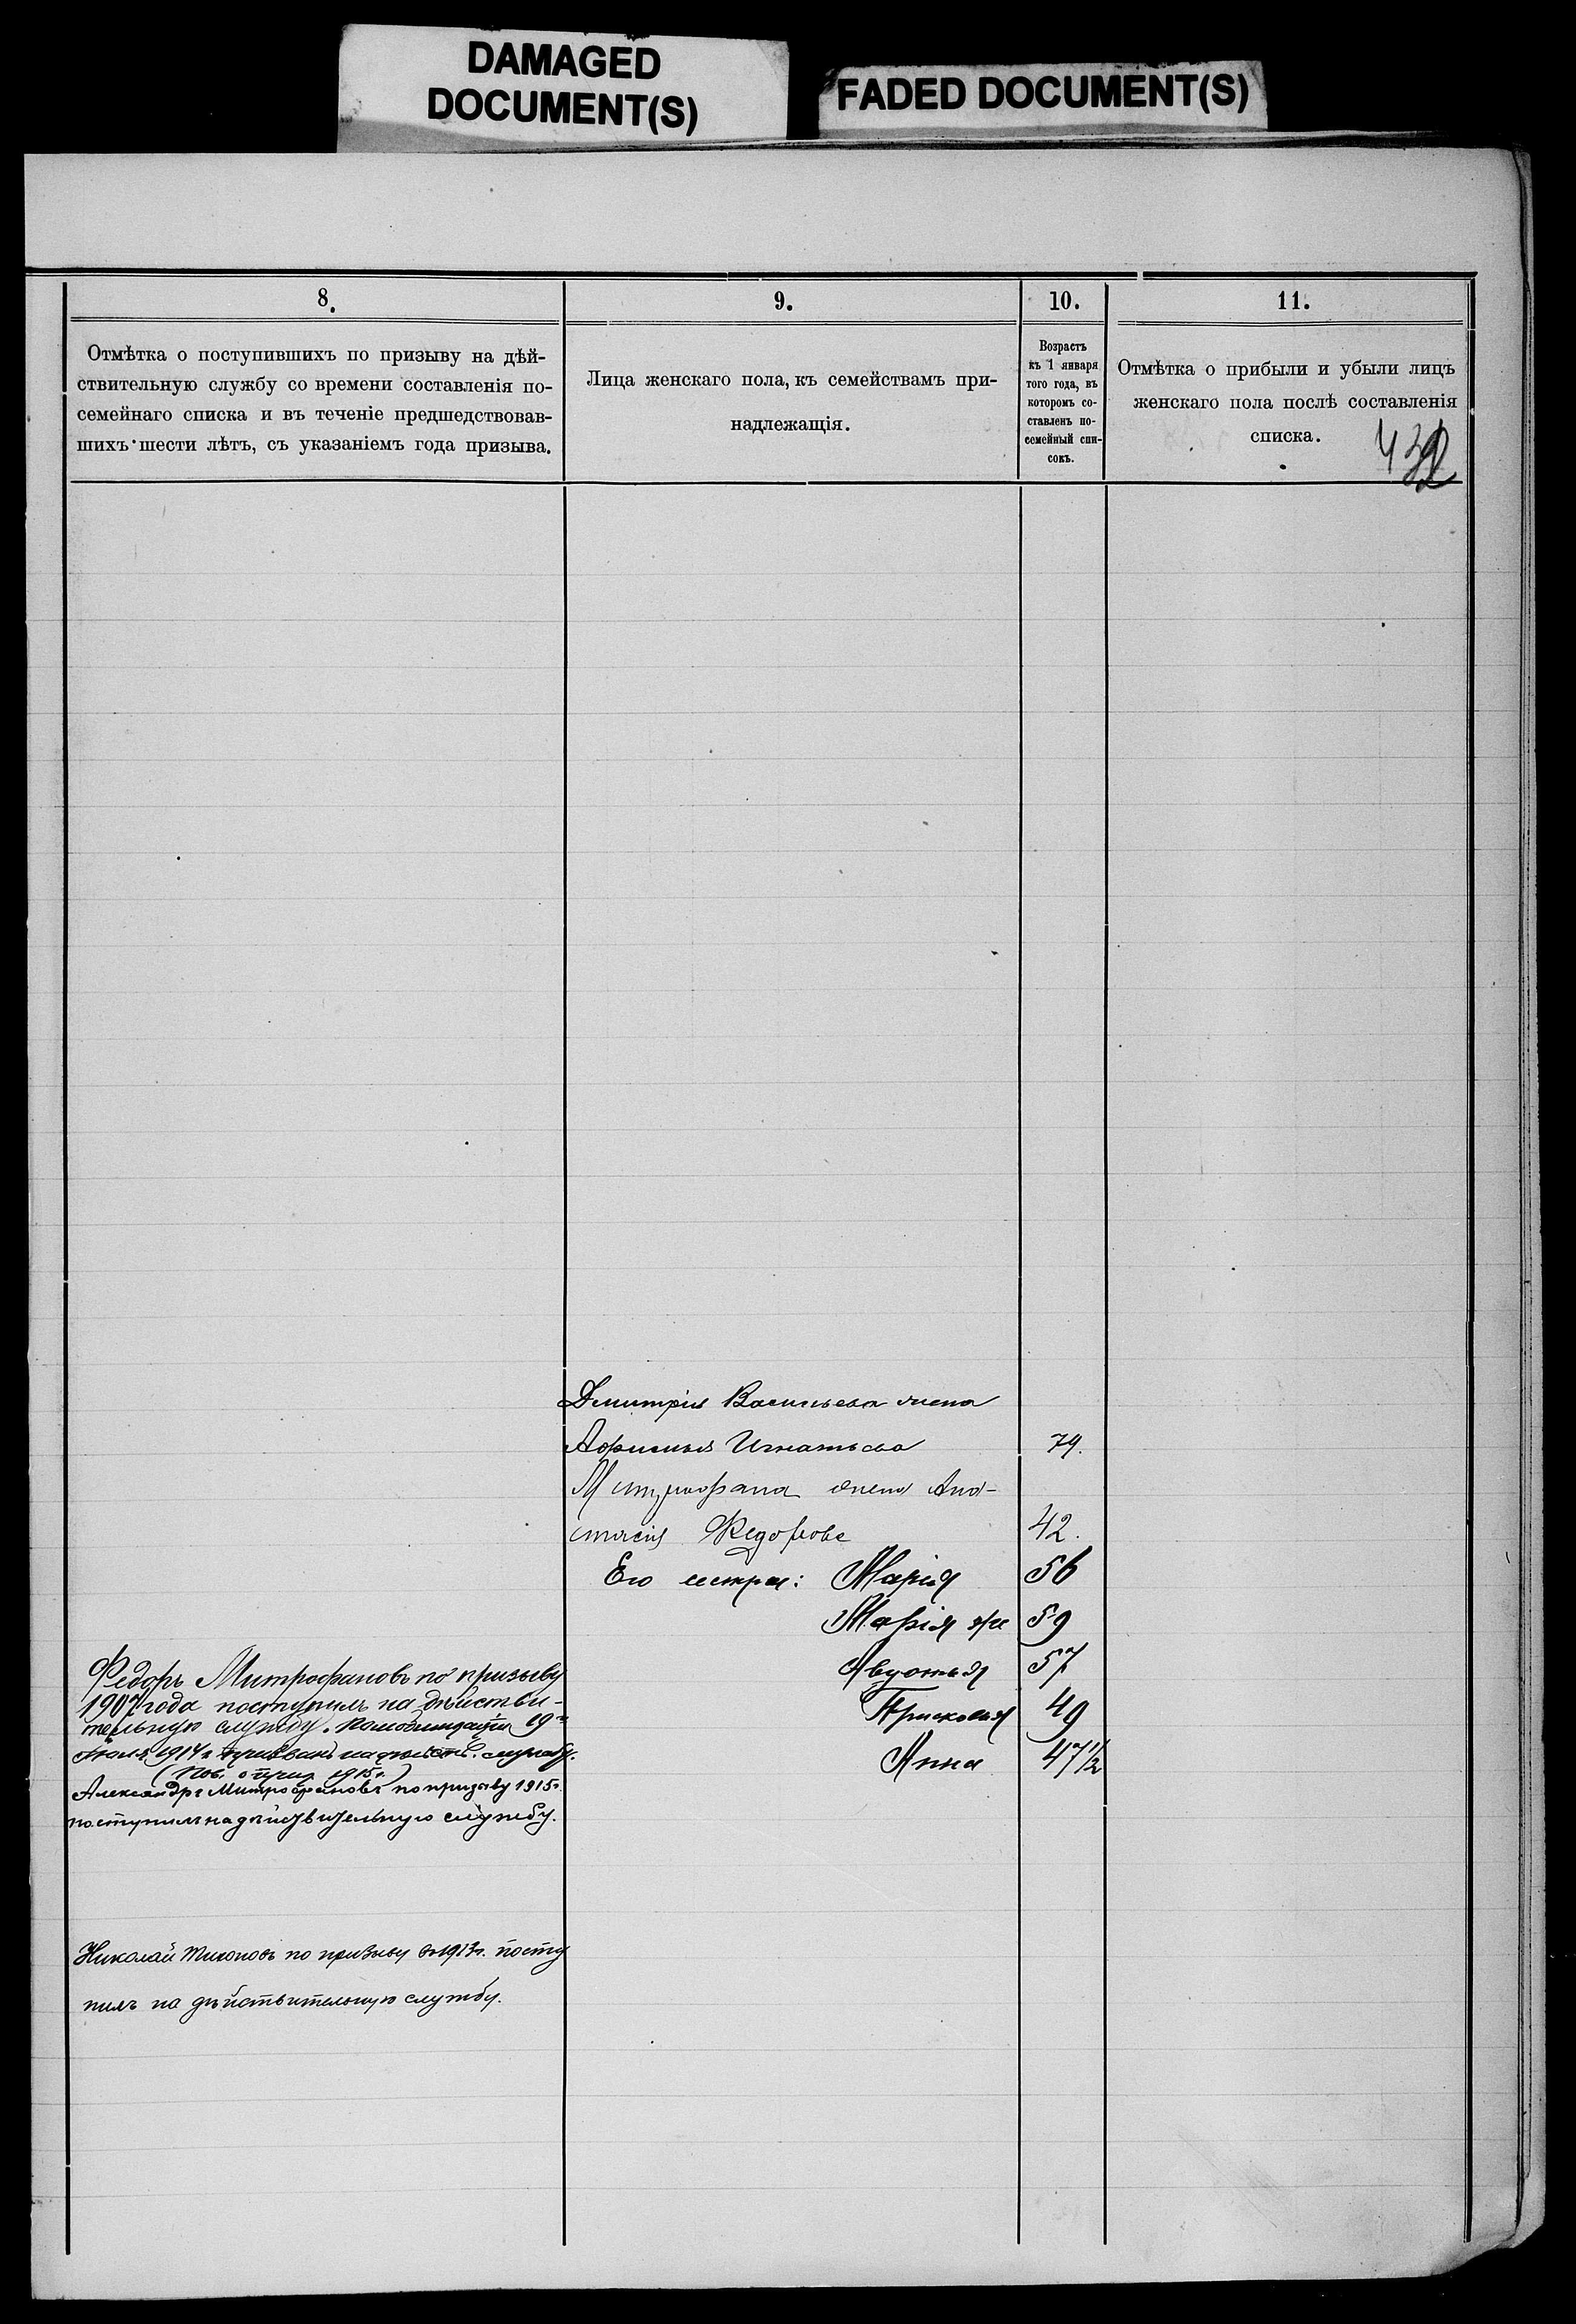 DAMAGED
DOCUMENT(S)
FADED DOCUMENT(S)
8.
Отмѣтка о поступившихъ по призыву на дѣй-
ствительную службу со времени составленія по-
семейнаго списка и въ теченіе предшедствовав-
шихъ шести лѣтъ, съ указаніемъ года призыва.
9.
Лица женскаго пола, къ семействамъ при-
надлежащія.
10.
Возрастъ
къ 1 января
того года, въ
которомъ со-
ставленъ по-
семейный спи-
сокъ.
11.
Отмѣтка о прибыли и убыли лицъ
женскаго пола послѣ составленія
списка.
Дмитрія Васильева жена
Игнатьева 79.
Митрофана жена Ана-
стасія Федорова 42.
Его сестры: Марія 56
Марія же 59
Авдотья 57
Прасковья 49
Анна 47½
Федоръ Митрофановъ по призыву
1907 года поступилъ на дѣйстви-
тельную службу. По мобилизаціи 19го
Іюля 1914 г. призванъ на дѣйств. службу.
1915г.)
Александръ Митрофановъ по призыву 1915г.
поступилъ на дѣйствительную службу.
Николай Тихоновъ по призыву въ 1913г. посту
пилъ на дѣйствительную службу.